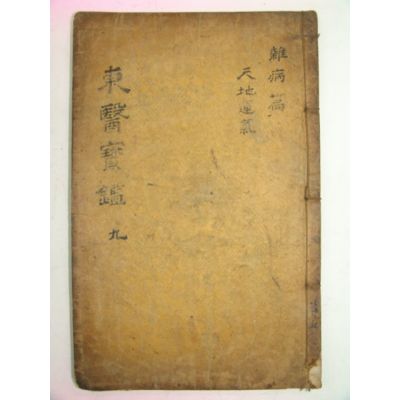 雜病篇
天地運氣
東醫寶鑑 九